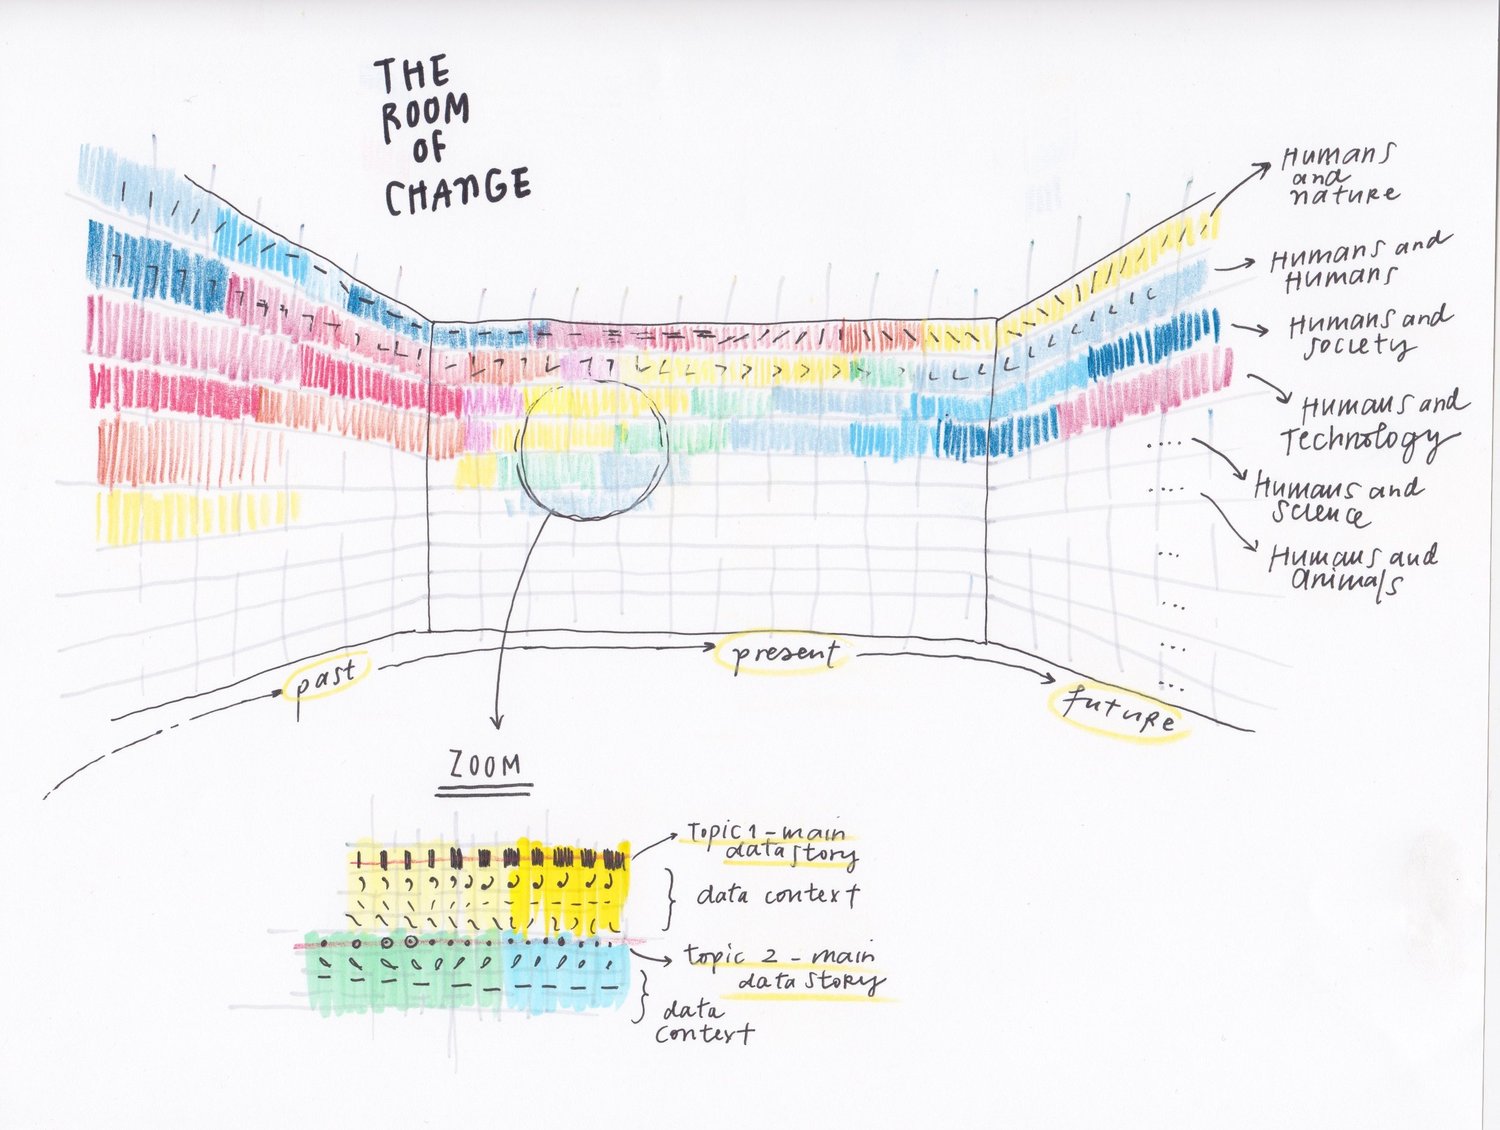 THE
ROOM
OF
CHANGE
Humans
and
nature
Humans and
Humans
Humans and
society
Humans and
Technology
....
Humans and
science
....
Humans and
animals
...
...
...
...
past
present
future
ZOOM
Topic 1 - main
data story
data context
topic 2 - main
data story
data
context